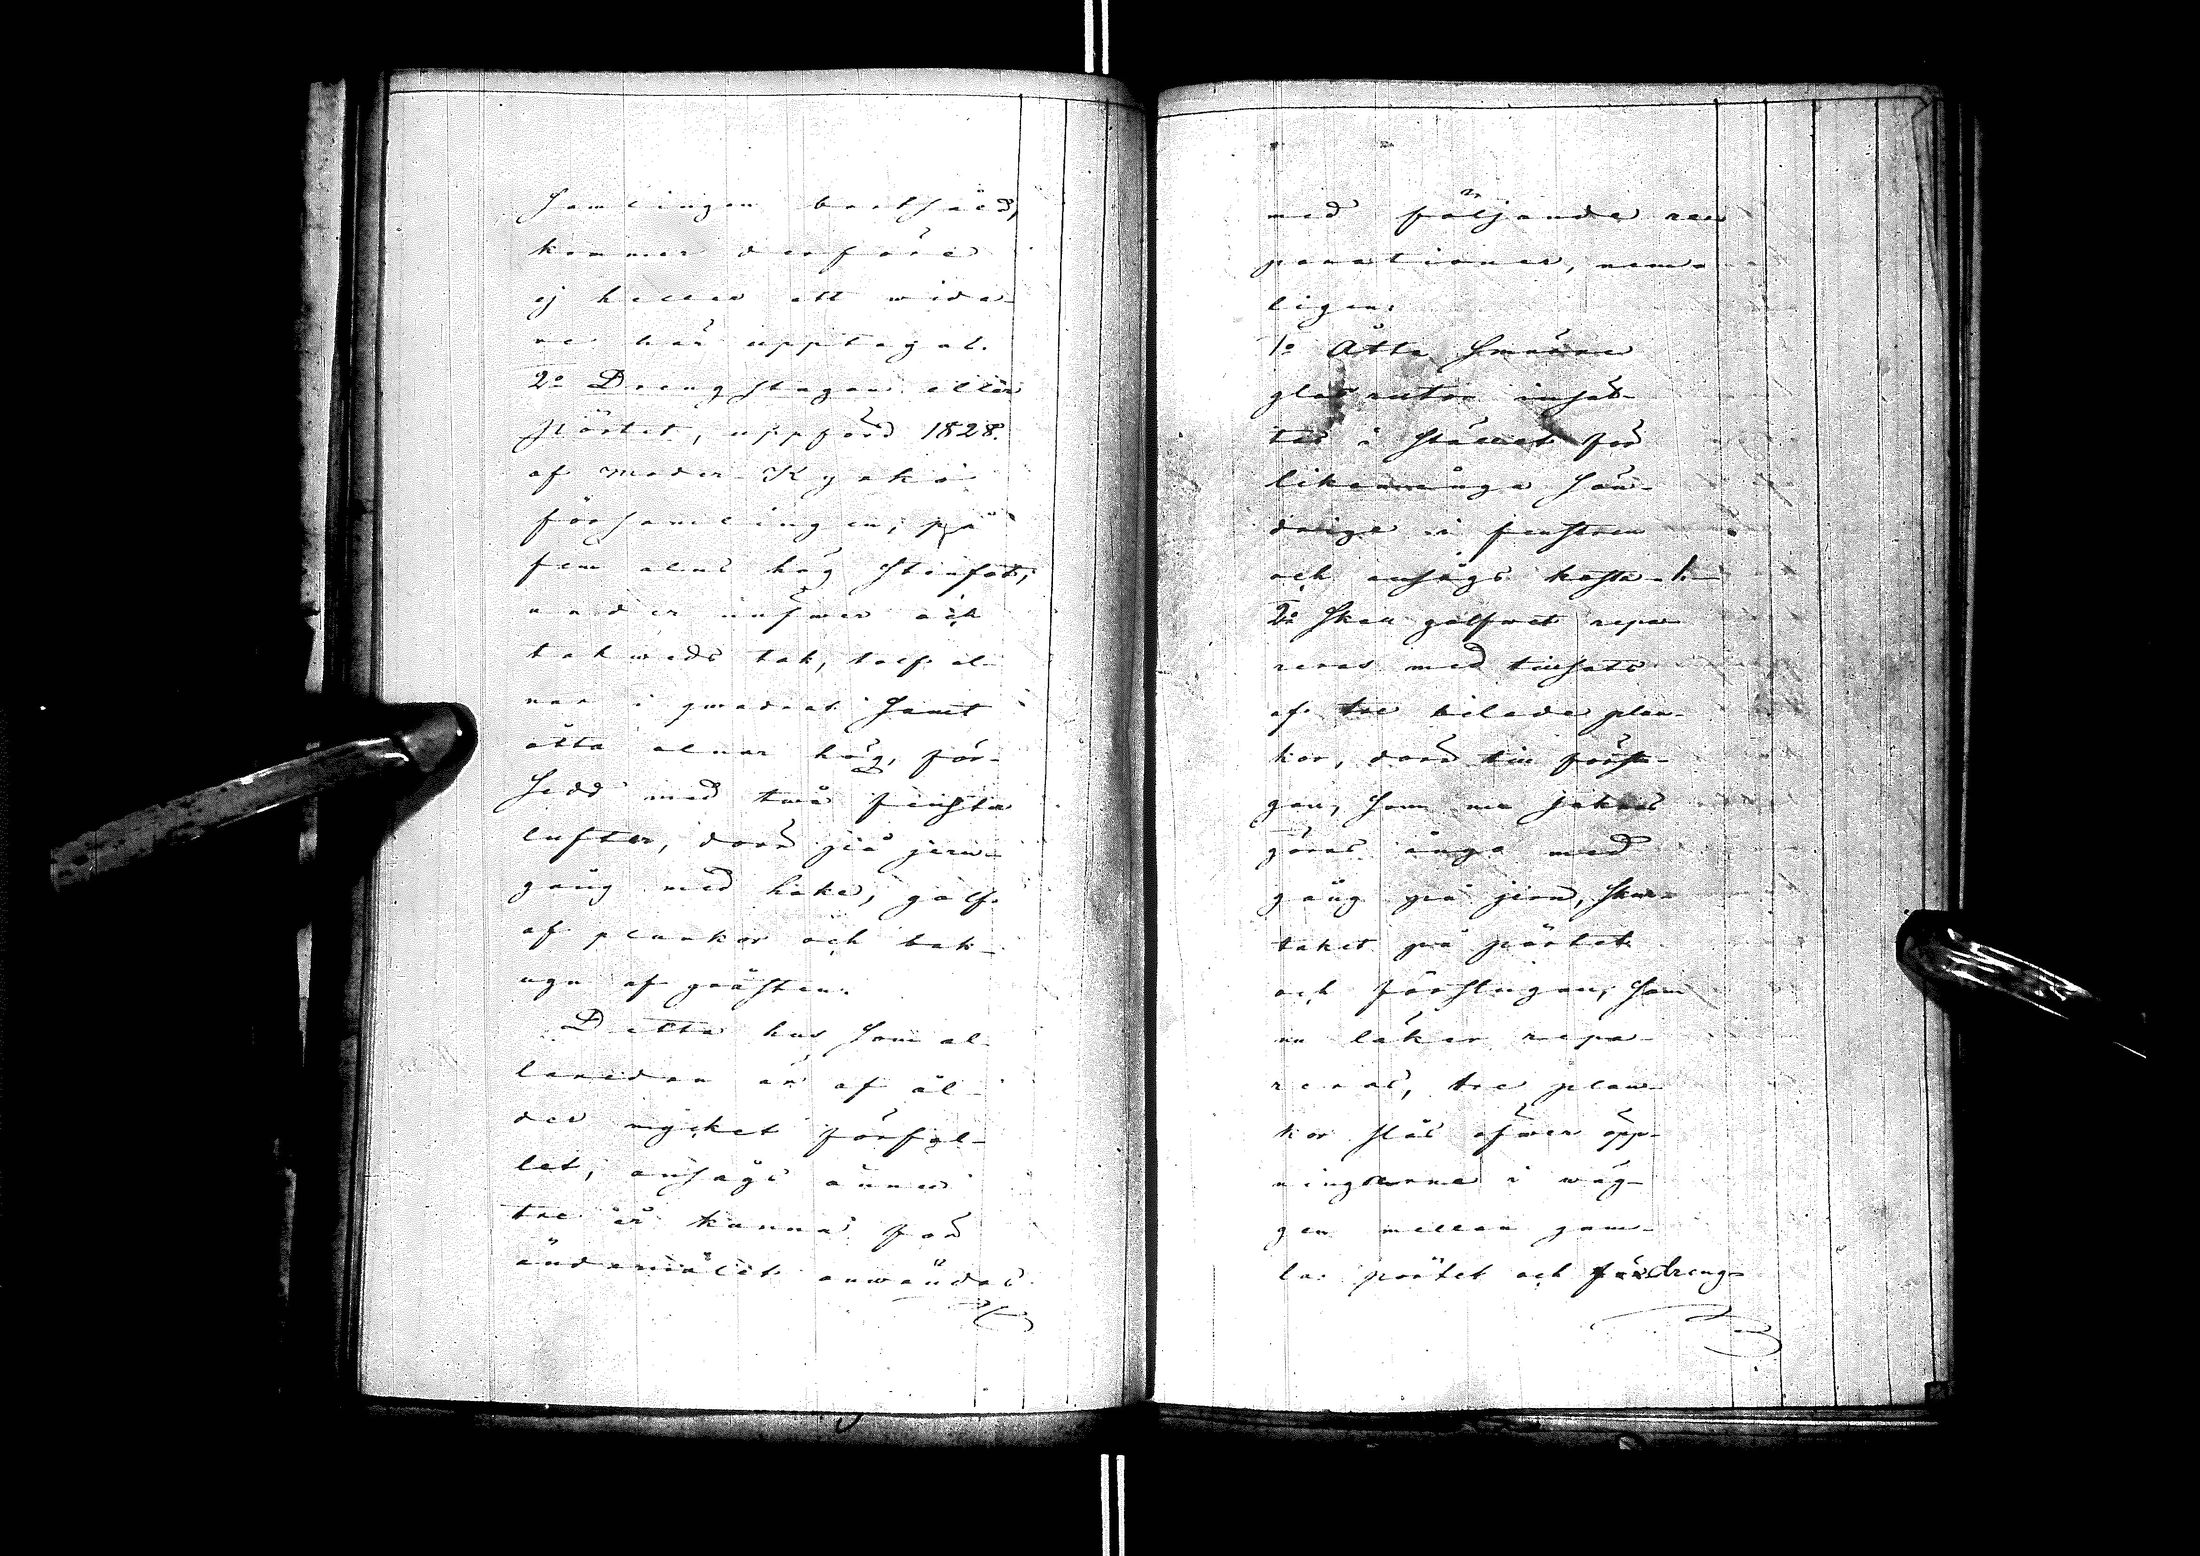 samlingen bortsåld,
kommer derföre
ej heller att wida-
re här upptagas.
2o Drengstugan eller
Pörtet, uppförd 1828.
af moder Kyrko
församlingen, på
fem alns hög stenfot,
under näfwer och
takweds tak, tolf al-
nar i qwadrat samt
åtta alnar hög, för-
sedd med twå fenster
lufter, dörr på jern-
gång med hake, golf
af plankor och bak-
ugn af gråsten.
Detta hus som al-
laredan är af ål-
der mycket förfal-
let, ansågs ännu
tre år kunna för
ändamålet användas
med följande re-
parationer, nem-
ligen:
1o Åtta smärre
glas rutor insät-
tas i stället för
lika många sön-
drige i fenstren
och ansågs kosta 1.
2o Skall golfwet repa-
reras med tillsats
af tre bilade plan-
kor, dörr till förstu-
gan, som nu saknas
göras ånga med
gång på jern,
taket på pörtet
och förstugan, som
nu läker repa-
reras, tre plan-
kor slås öfwer öpp-
ningarna i wäg-
gen mellan gam-
la pörtet och dreng-